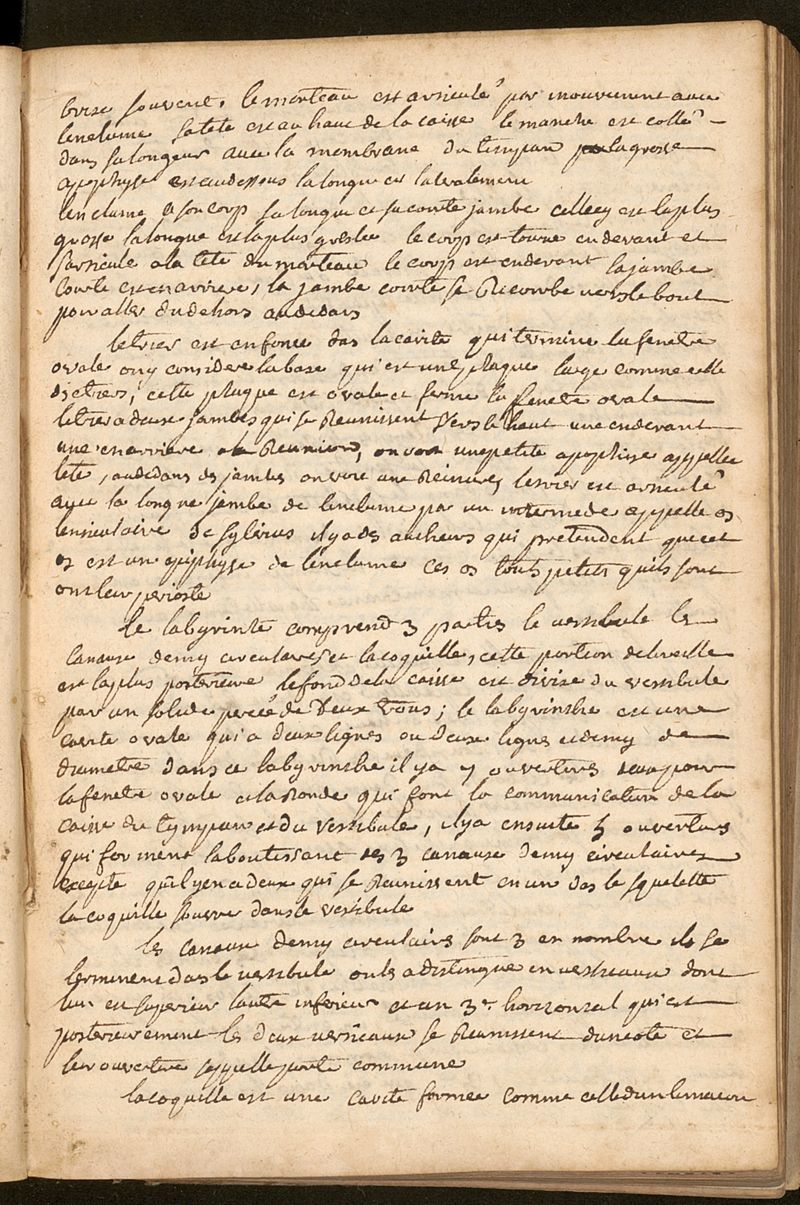 brise souvent. le marteau est articulé par mouvement avec
lenclume sa tete est au haut de la caisse le manche est collé
dans sa longeur avec la membrane du timpan sa grosse
apophyse est au dessous la longue est lateralement
lenclume a son corp sa longue et sa courte jambe celle cy est la plus
grosse la longue est la plus gresle le corp est tourne en devant et
sarticule a la tete du marteau le corp est en devant la jambe
courte est en arriere, la jambe courte se recourbe vers le bout
pour aller du dehors au dedans
letrier est enfoncé das la cavité qui termine la fenetre
ovale on y considere la base qui est une plaque large comme celle
detriers; cette plaque est ovale et ferme la fenetre ovale
letrier a deux jambes qui se reunissent vers le haut une en devant
une en arriere reunion, on voit une petite apophise appellee
tete, au dedans des jambes on voit une reinure, letrier est articulé
avec la longue jambe de lenclume par un intermede appelle os
lenticulaire de sylvius il y a des autheurs qui pretendent que cet
os est un epiphyse de lenclume ces os touts petits quils sont
ont leur perioste
le labyrinte comprend 3 parties le vestibule les
canaux demy circulaires et la coquille, cette portion de loreille
est la plus posterieure le fond de la caisse est divisé du vestibule
par un solide percé de deux trous; le labyrinthe est une
cavité ovale qui a deux lignes ou deux lignes et demy de
diametre dans ce labyrinthe il y a 7 ouvertures deux pour
la fenetre ovale et la ronde qui font la communication de la
caisse du tympan et du vestibule, il y a ensuite 5 ouvertures
qui forment laboutissant des 3 canaux demy circulaires
excepte quil y en a deux qui se reunissent en un das le squelette
la coquille souvre dans le vestibule
les canaux demy circulaires sont 3 en nombre ils se
terminent das le vestibule on les a distingue en verticaux dont
lun est superieur lautre inferieur et un 3e horizontal qui est
posterieurement les deux verticaux se reunissent dun coté et
leur ouverture sappelle porte commune
la coquille est une cavité formée comme celle dun limacon